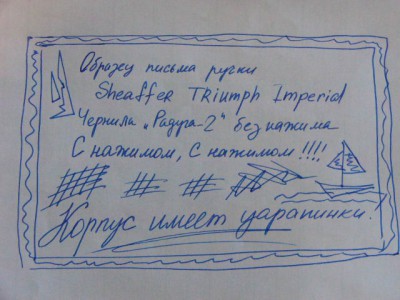 Образец письма ручки
Sheaffer TRiumph Imperial
Чернила „Радуга-2" без нажима
С нажимом, С нажимом!!!!
Корпус имеет царапинки.